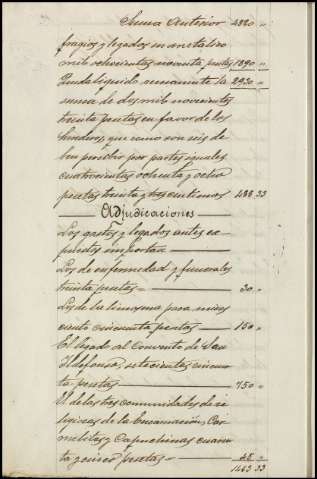 Suma Anterior 4820 "
fragios y legados en metálico
mil ochocientas noventa pesetas 1890 "
Queda líquido remanente la 2930 "
suma de dos mil novecientas
treinta pesetas en favor de los
herederos, que como son seis de
ben percibir por partes iguales
cuatrocientas ochenta y ocho
pesetas treinta y tres centimos 488 33
Adjudicaciones
Los gastos y legados antes es
presados importan
Los de enfermedad y funerales
treinta pesetas 30 "
Los de la limosna para misas
ciento cincuenta pesetas 150 "
El legado al Convento de San
Ildefonso, setecientas cincuen
ta pesetas 750 "
Al de las tres comunidades de re
ligiosas de la Encarnación, Car
melitas y Capuchinas cuaren
ta y cinco pesetas 45 "
1463 33